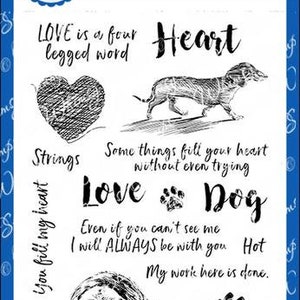 LOVE is a four
legged word
Heart
Strings
Some things fill your heart
without even trying
You fill my heart
Love Dog
Even if you can't see me
I will ALWAYS be with you
Hot
My work here is done.